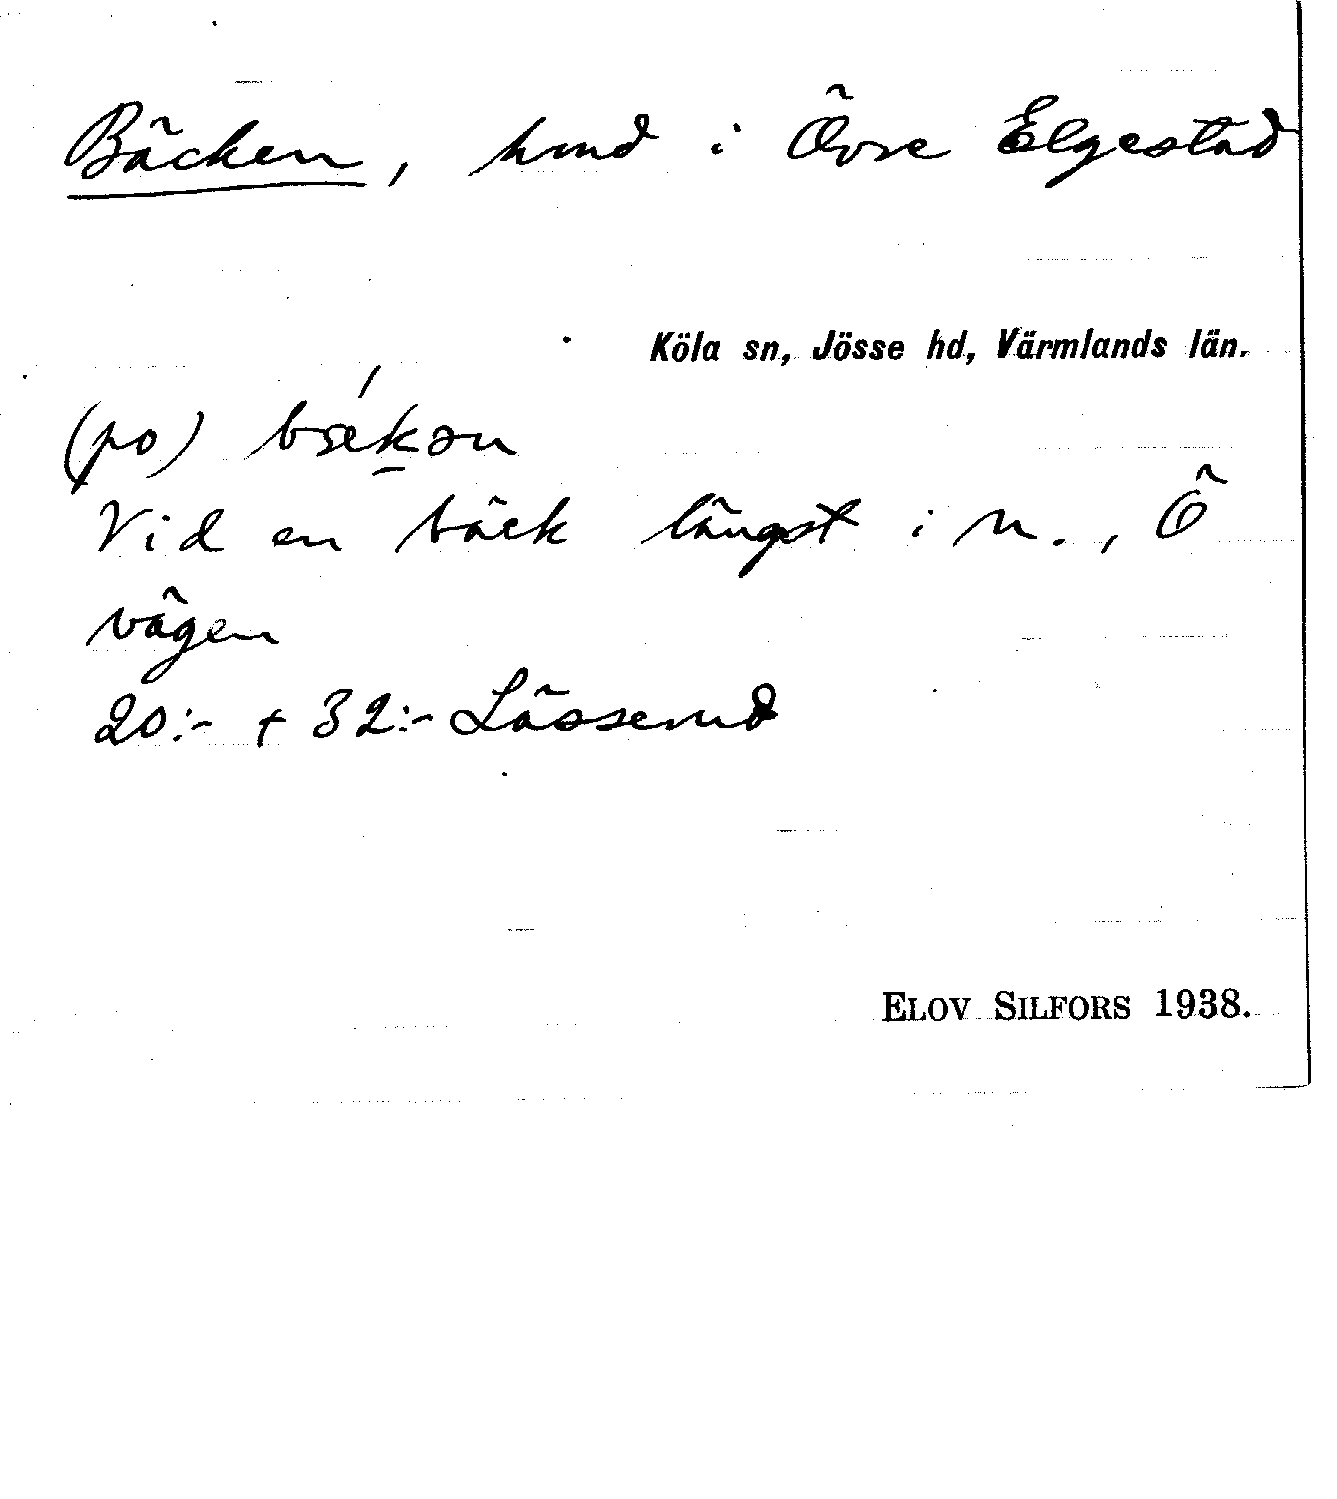 Bäcken, hmd i Övre Elgestad
Köla sn, Jösse hd, Värmlands län.
(po) bækən
Vid en bäck längst i N., Ö
vägen
20:- + 32:- Lässerud
ELOV SILFORS 1938.